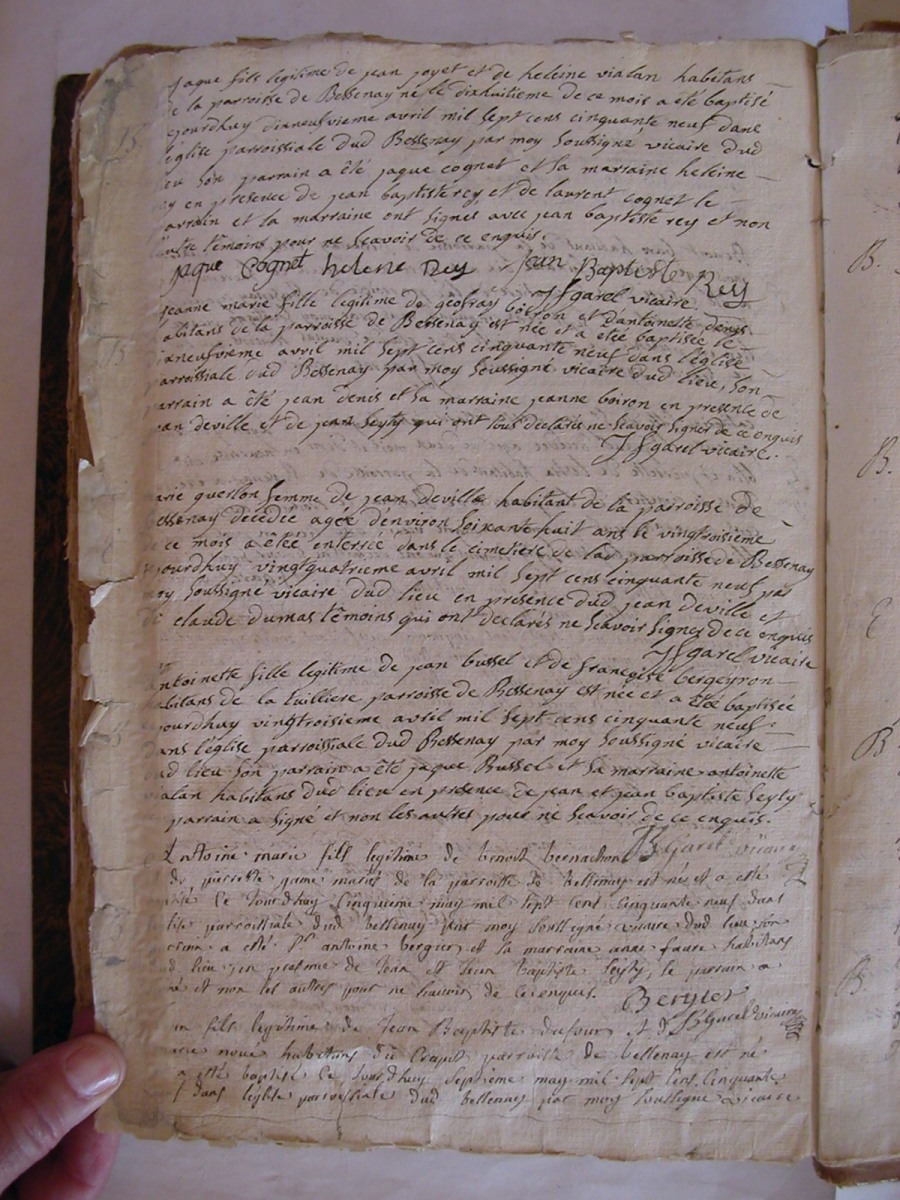 jaque fils legitime de jean joyet et de heleine vialan habitans
la parroisse de Bessenay né le diahuitieme de ce mois a été baptisé
jourdhuy dianeufvieme avril mil sept cens cinquante neuf dans
église parroissiale dud Bessenay par moy soussigné vicaire dud
son parrain a été jaque cognet et sa marraine heleine
en presence de jean baptiste rey et de laurent cognet le
parrain et la marraine ont signés avec jean baptiste rey et non
témoins pour ne scavoir de ce enquis.
jaque Cognet helene Rey Jean Baptiste Rey
JFgarel vicaire
jeanne marie fille legitime de geofray boiron et d'antoinette denis
abitans de la parroisse de Bessenay est née et a été baptisée le
ianeufvieme avril mil sept cens cinquante neuf dans l'église
arroissiale dud Bessenay par moy soussigné vicaire dud lieu, son
arrain a été jean denis et sa marraine jeanne boiron en presence de
ean deville et de jean seyty qui ont tous declarés ne scavoir signer de ce enquis
JFgarel vicaire.
arie guerlon femme de jean deville habitant de la parroisse de
essenay décédée agée d'environ soixante huit ans le vingtroisieme
ce mois a étée enterrée dans le cimetiere de lad parroisse de Bessenay
jourdhuy vingtquatrieme avril mil sept cens cinquante neuf par
oy soussigné vicaire dud lieu en présence dud jean deville et
claude dumas témoins qui ont declarés ne scavoir signer de ce enquis
JFgarel vicaire
ntoinette fille legitime de jean bussel et de françoise bergeyron
abitans de la tuilliere parroisse de Bessenay est née et a étée baptisée
jourdhuy vingtroisieme avril mil sept cens cinquante neuf
ans l'église parroissiale dud Bessenay par moy soussigné vicaire
ud lieu son parrain a été jaque Bussel et sa marraine antoinette
ialan habitans dud lieu en présence de jean et jean baptiste seyty
parrain a signé et non les autres pour ne scavoir de ce enquis.
garel vicaire
Antoine marie fils legitime de benoit bernachon
de pierrette game mariés de la parroisse de bessenay est né et a été
ce Jourdhuy Cinquieme may mil sept cent Cinquante neuf dans
parroissiale dud bessenay par moy soussigné vicaire dud lieu son
a été antoine bergier et la marraine anne faure habitans
lieu en presence de Jean et Jean baptiste seyty, le parrain a
et non les autres pour ne scavoir de ce enquis.
Bergier
garel vicaire
fils legitime de Jean Baptiste dufour et d
habitans du parroisse de bessenay est né
a été baptisé Ce Jourdhuy septieme may mil sept cens Cinquante
dans léglise parroissiale dud bessenay par moy soussigné vicaire